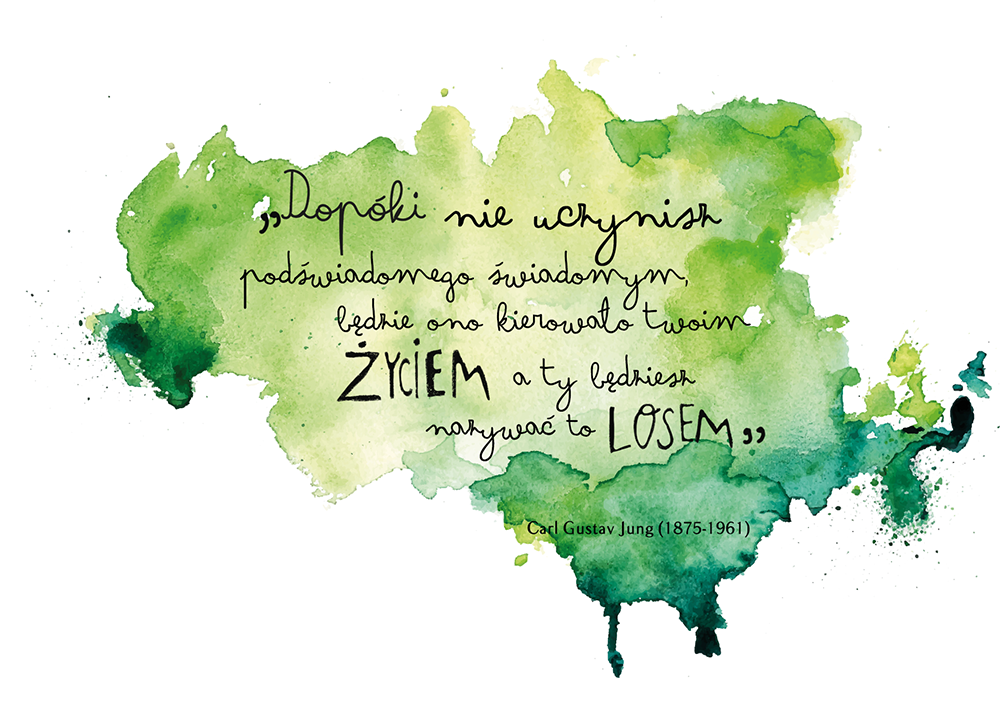 „Dopóki nie uczynisz
podświadomego świadomym,
będzie ono kierowało twoim
ŻYCIEM a ty będziesz
nazywać to LOSEM„
Carl Gustav Jung (1875-1961)